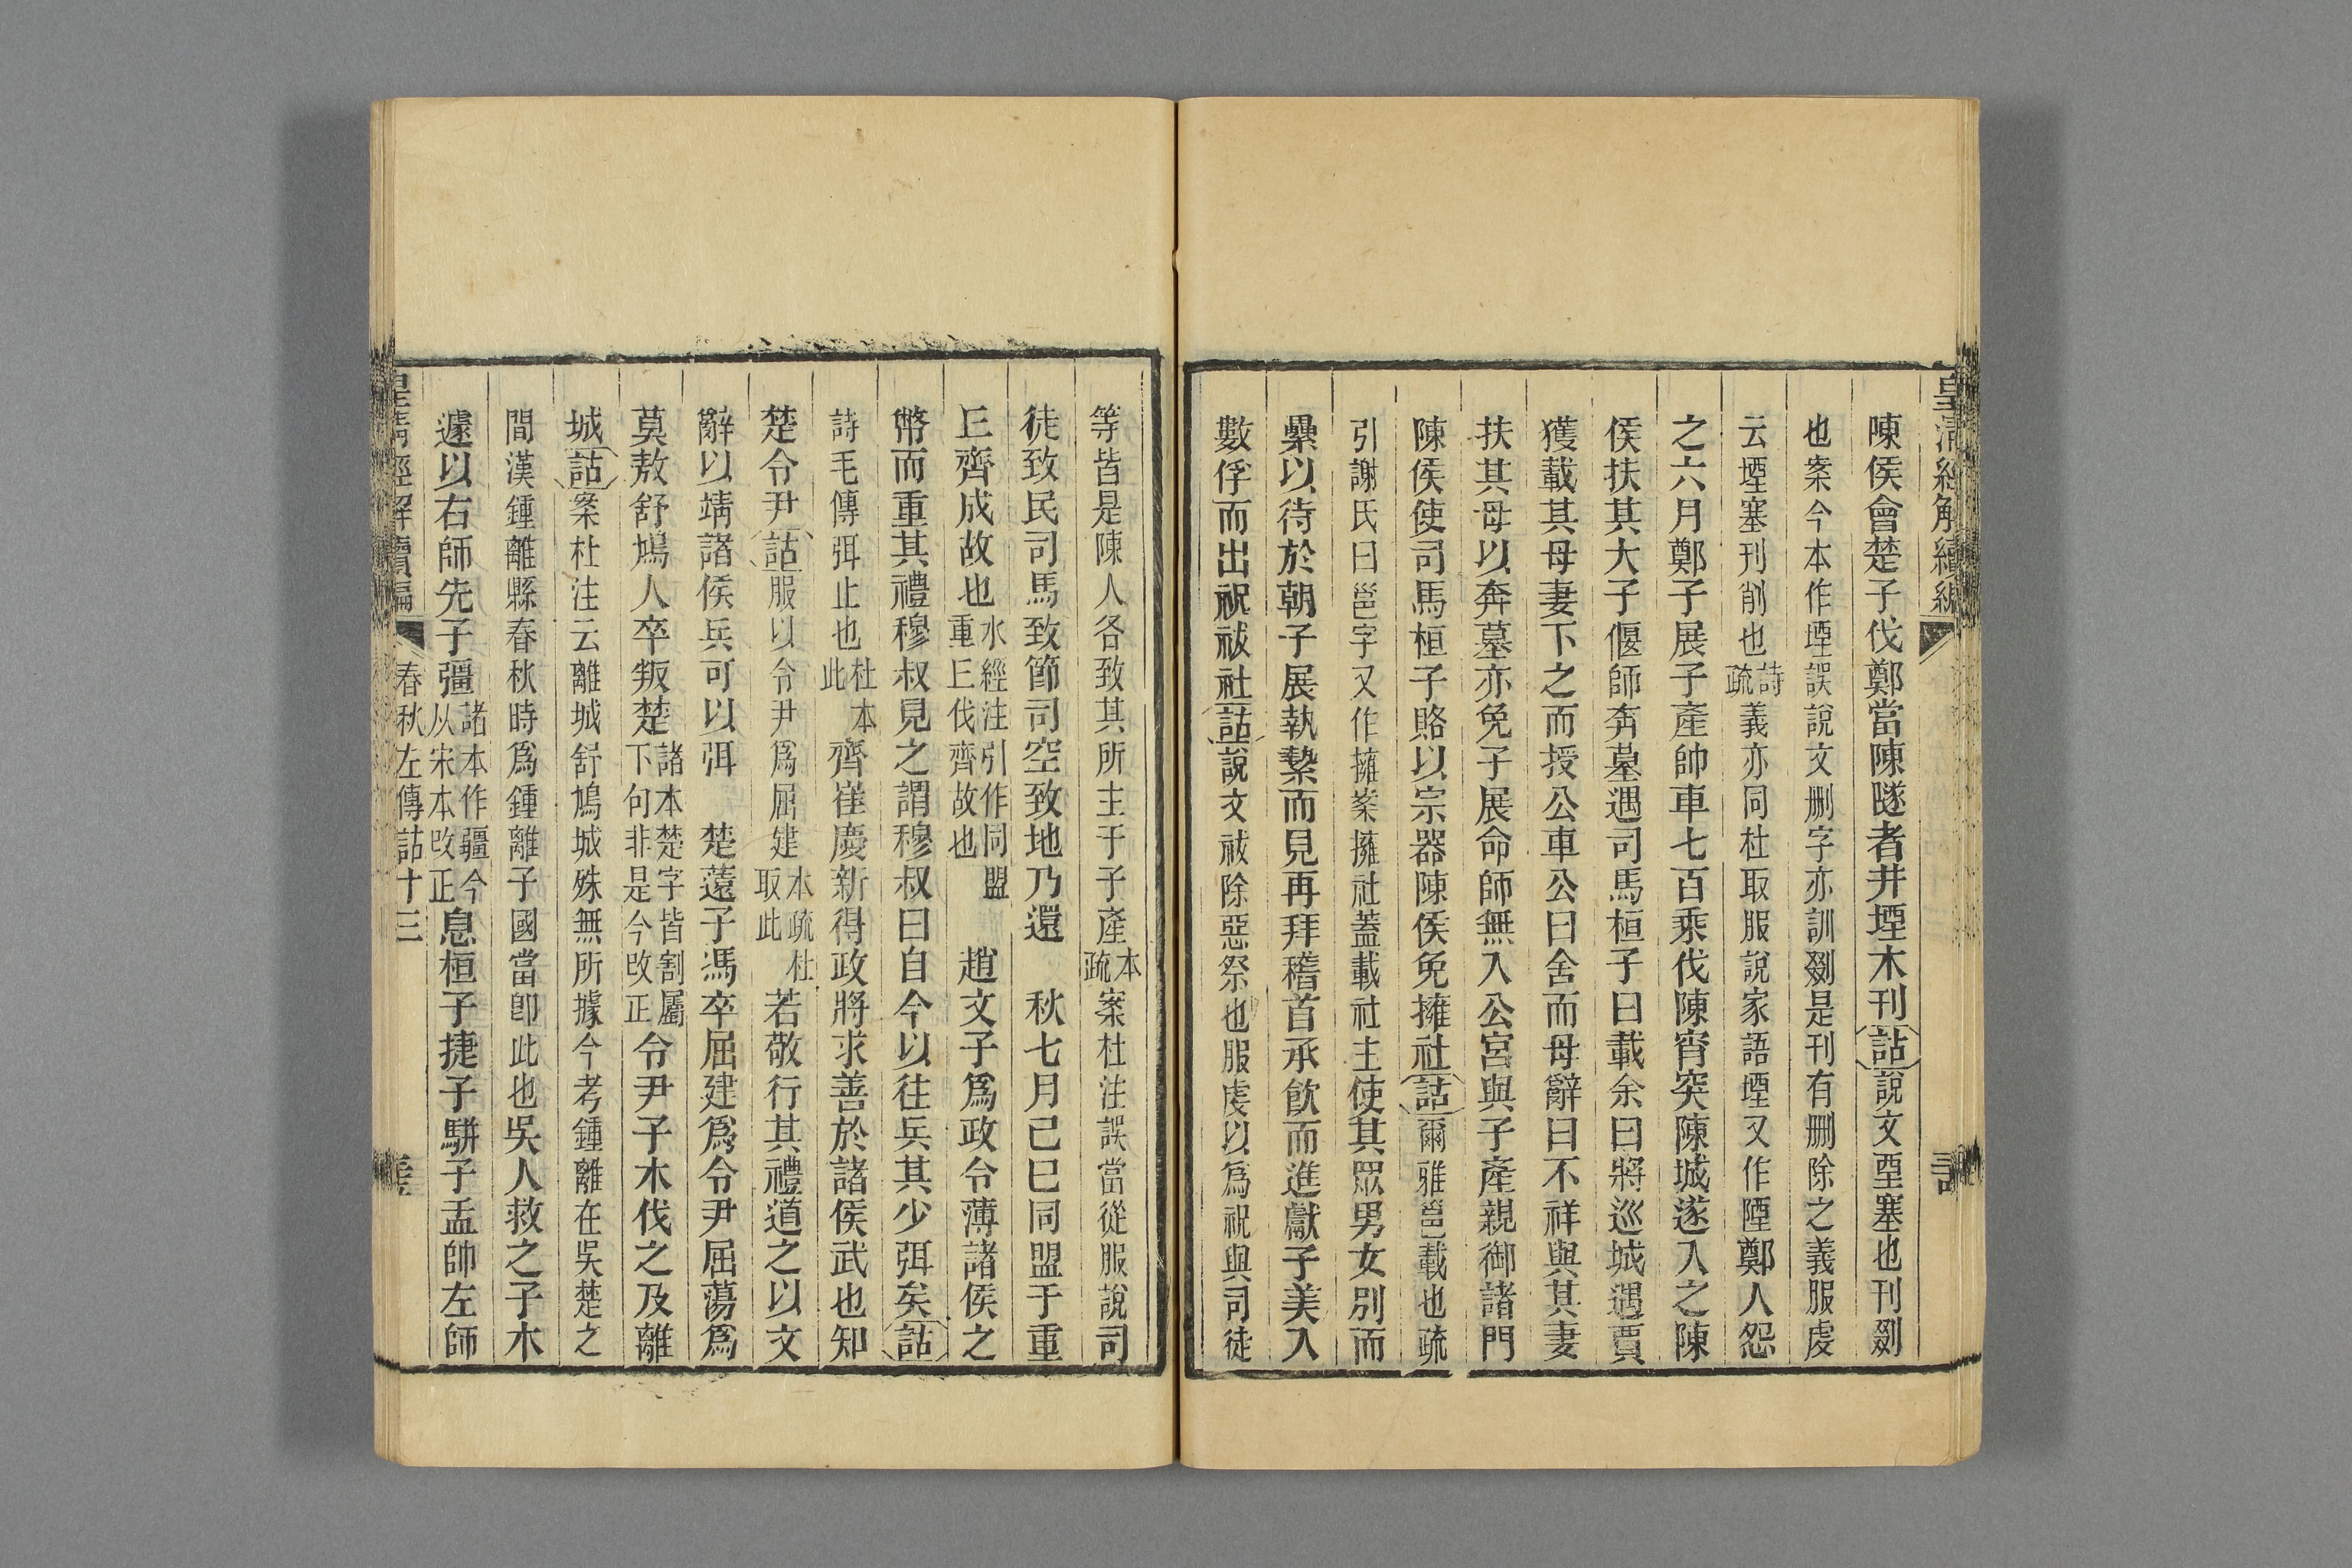 陳侯會楚子伐鄭當陳隧者井堙木刊詁說文垔塞也刊剟
也案今本作堙誤說文刪字亦訓剟是刊有刪除之義服虔
云堙塞刊削也詩疏義亦同杜取服說家語堙又作陻鄭人怨
之六月鄭子展子產帥車七百乘伐陳宵突陳城遂入之陳
侯扶其大子偃師奔墓遇司馬桓子曰載余曰將巡城遇賈
獲載其母妻下之而授公車公曰舍而母辭曰不祥與其妻
扶其母以奔墓亦免子展命師無入公宮與子產親御諸門
陳侯使司馬桓子賂以宗器陳侯免擁社詁爾雅邕載也疏
引謝氏曰邕字又作擁案擁社蓋載社主使其眾男女別而
纍以待於朝子展執縶而見再拜稽首承飲而進獻子美入
數俘而出祝祓社詁說文祓除惡祭也服虔以爲祝與司徒
等皆是陳人各致其所主于子產本疏案杜注誤當從服說司
徒致民司馬致節司空致地乃還　秋七月己巳同盟于重
丘齊成故也水經注引作同盟重丘伐齊故也　趙文子爲政令薄諸侯之
幣而重其禮穆叔見之謂穆叔曰自今以往兵其少弭矣詁
詩毛傳弭止也杜本此齊崔慶新得政將求善於諸侯武也知
楚令尹詁服以令尹爲屈建本疏杜取此若敬行其禮道之以文
辭以靖諸侯兵可以弭　楚薳子馮卒屈建爲令尹屈蕩爲
莫敖舒鳩人卒叛楚諸本楚字皆割屬下句非是今改正令尹子木伐之及離
城詁案杜注云離城舒鳩城殊無所據今考鍾離在吳楚之
間漢鍾離縣春秋時爲鍾離子國當卽此也吳人救之子木
遽以右師先子彊諸本作疆今从宋本改正息桓子捷子駢子盂帥左師
皇清經解續編　春秋左傳詁十三